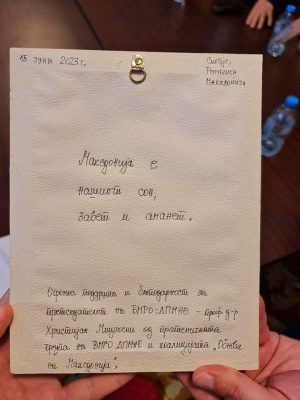 15 јуни 2023 г,
Скопје,
Република
Македонија
Македонија е
нашиот сон,
завет и аманет.
Огромна поддршка и благодарност за
претседателот на ВМРО-ДПМНЕ - проф. д-р
Христијан Мицкоски од пратеничката
група на ВМРО ДПМНЕ и коалицијата „Обнова
на Македонија“,